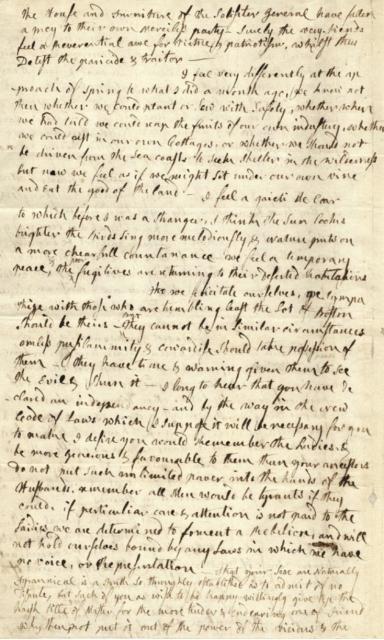 The House and Furniture of the Solisiter General have fallen
a prey to their own merciless party— Surely the very Fiends
feel a Reverential awe for Virtue & patriotism, whilst they
Detest the paricide & traitor—
I feel very differently at the ap
proach of spring to what I did a month ago, we knew not
then whether we could plant or sow with safety, whether when
we had toild we could reap the fruits of our own industery, whether
we could rest in our own Cottages, or whether we should not
be driven from the Sea coasts to seek shelter in the wilderness
but now we feel as if we might sit under our own vine
and eat the good of the land— I feel a gaieti de Coar
to which before I was a stranger, I think the Sun looks
brighter the Birds sing more melodiously, & Nature puts on
a more chearfull countanance we feel a temporary
peace, & the poor fugitives are returning to their deserted habitations
tho we felicitate ourselves, we sympa
thize with those who are trembling least the Lot of Boston
should be theirs— they cannot be in similar circumstances
unless pusilanimity & cowardise should take possession of
them— they have time & warning given them to see
the Evil & shun it— I long to hear that you have de
clared an independancy— and by the way in the new
Code of Laws which I suppose it will be necessary for you
to make I desire you would Remember the Ladies, &
be more generous & favourable to them than your ancestors
do not put such unlimited power into the hands of the
Husbands. remember all Men would be tyrants if they
could. if perticuliar care & attention is not paid to the
Ladies we are determined to foment a Rebelion and will
not hold ourselves bound by any Laws in which we have
no voice, or Representation— that your Sex are Naturally
Tyrannical is a Truth so thouroughly established as to admit of no
dispute, but such of you as wish to be happy willingly give up the
harsh title of Master for the more tender & endearing one of Friend
why then, not put it out of the power of the vicious & the